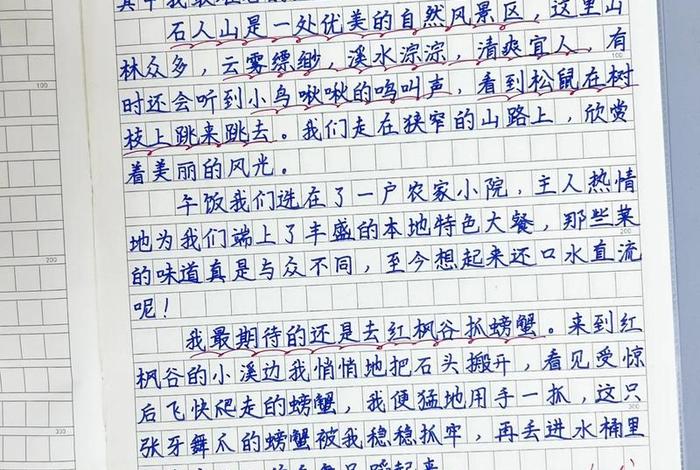 石人山是一处优美的自然风景区，这里山
林众多，云雾缥缈，溪水淙淙，清爽宜人，有
时还会听到小鸟啾啾的鸣叫声，看到松鼠在树
枝上跳来跳去。我们走在狭窄的山路上，欣赏
着美丽的风光。
午饭我们选在了一户农家小院，主人热情
地为我们端上了丰盛的本地特色大餐，那些菜
的味道真是与众不同，至今想起来还口水直流
呢！
我最期待的还是去红枫谷抓螃蟹。来到红
枫谷的小溪边我悄悄地把石头搬开，看见受惊
后飞快爬走的螃蟹，我便猛地用手一抓，这只
张牙舞爪的螃蟹被我稳稳抓牢，再丢进水桶里